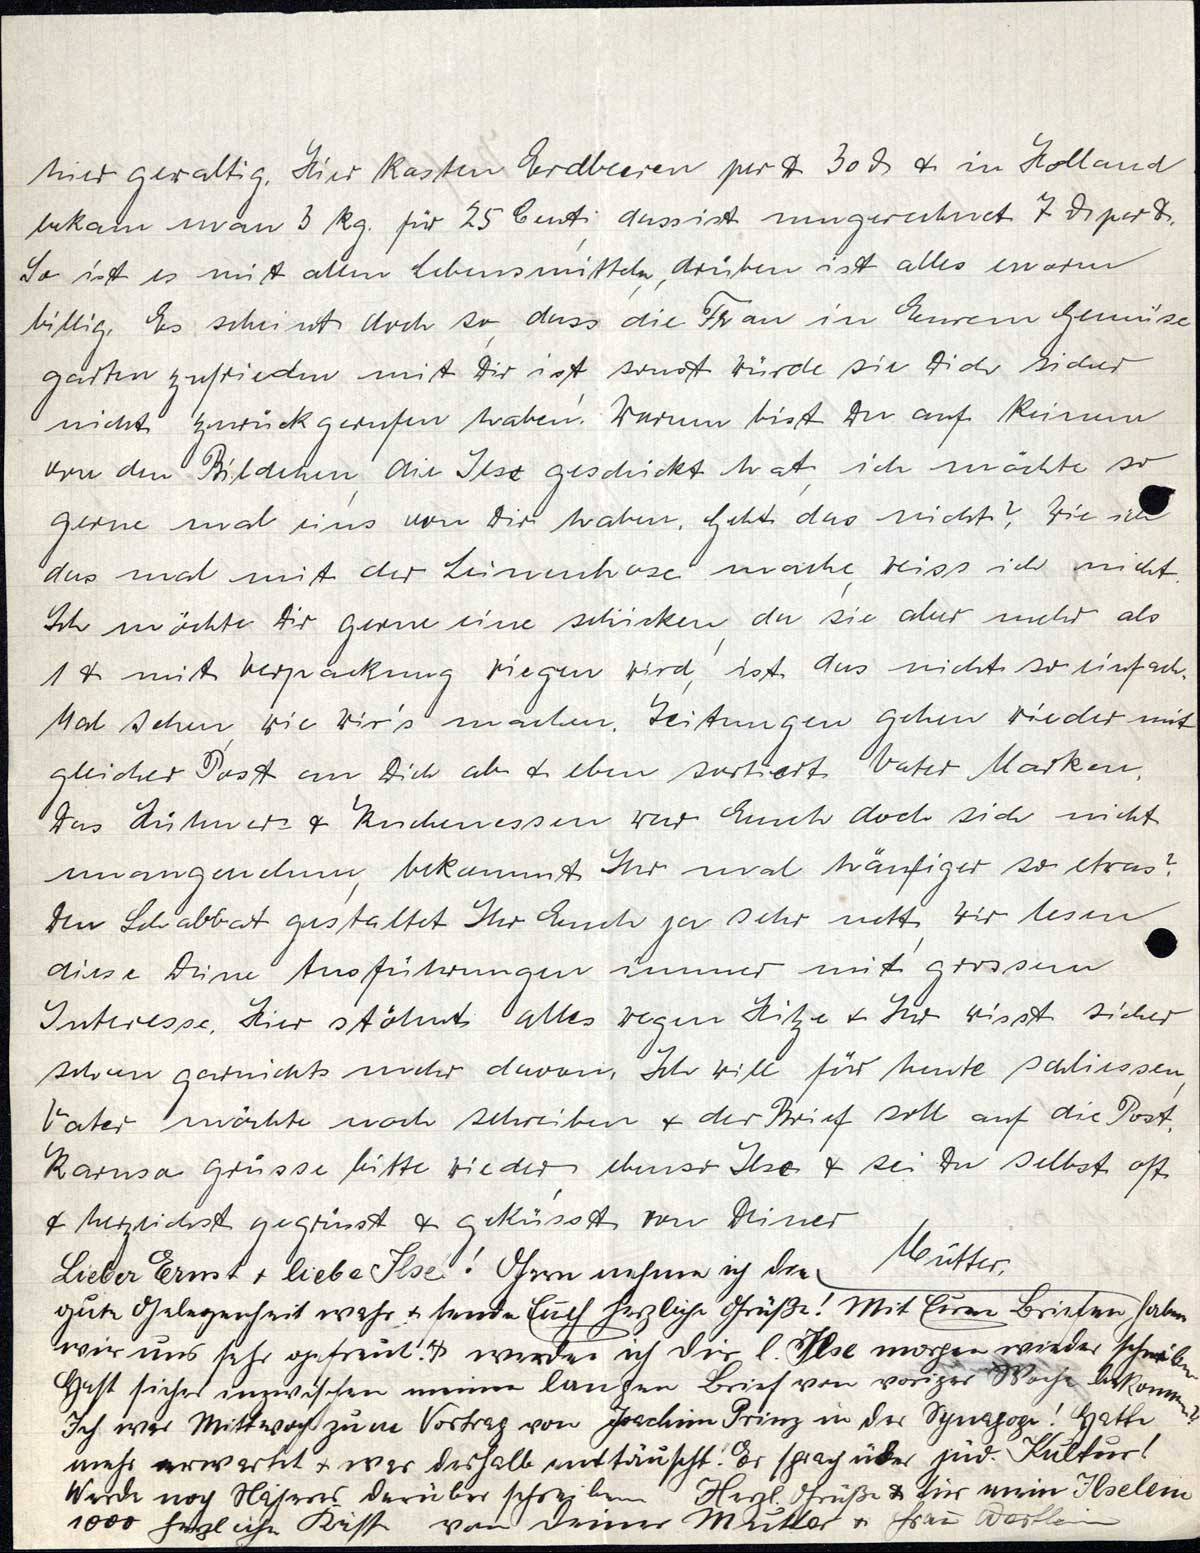 hier gewaltig. Hier kosten Erdbeeren per ℔ 30 ₰ & in Holland
bekam man 3 kg. für 25 Cent, dass ist umgerechnet 7 ₰ per ℔.
So ist es mit allen Lebensmitteln, drüben ist alles enorm
billig. Es scheint doch so, dass die Frau in Eurem Gemüse
garten zufrieden mit Dir ist sonst würde sie Dich sicher
nicht zurückgerufen haben. Warum bist Du auf keinem
von den Bildchen, die Ilse geschickt hat, ich möchte so
gerne mal eins von Dir haben. Geht das nicht? Wie ich
das mal mit der Leinenhose mache, weiss ich nicht.
Ich möchte Dir gerne eine schicken, da sie aber mehr als
1 ℔ mit Verpackung wiegen wird, ist das nicht so einfach.
Mal sehen, wie wir's machen. Zeitungen gehen wieder mit
gleicher Post an Dich ab & eben sortiert Vater Marken.
Das Hühner= & Kuchenessen war Euch doch sich nicht
unangenehm, bekommt Ihr mal häufiger so etwas?
Den Schabbat gestaltet Ihr Euch ja sehr nett, wir lesen
diese Deine Ausführungen immer mit grossem
Interesse. Hier stöhnt alles wegen Hitze & Ihr wisst sicher
schon garnichts mehr davon. Ich will für heute schliessen,
Vater möchte noch schreiben & der Brief soll auf die Post.
Karusa grüsse bitte wieder, ebenso Ilse & sei Du selbst oft
& herzlichst gegrüsst & geküsst von Deiner
Mutter.
Lieber Ernst & liebe Ilse! Gern nehme ich die
gute Gelegenheit wahr & sende Euch herzliche Grüße! Mit Euren Briefen haben
wir uns sehr gefreut! werde ich Dir l. Ilse morgen wieder schreiben
Hast sicher inzwischen meinen langen Brief von voriger Woche bekommen?
Ich war Mittwoch zum Vortrag von Joachim Prinz in der Synagoge! Hatte
mehr erwartet & war deshalb enttäuscht! Er sprach über jüd. Kultur!
Werde noch Näheres darüber schreiben Herzl. Grüße & Dir mein Ilselein
1000 herzliche von Deiner Mutter & Frau